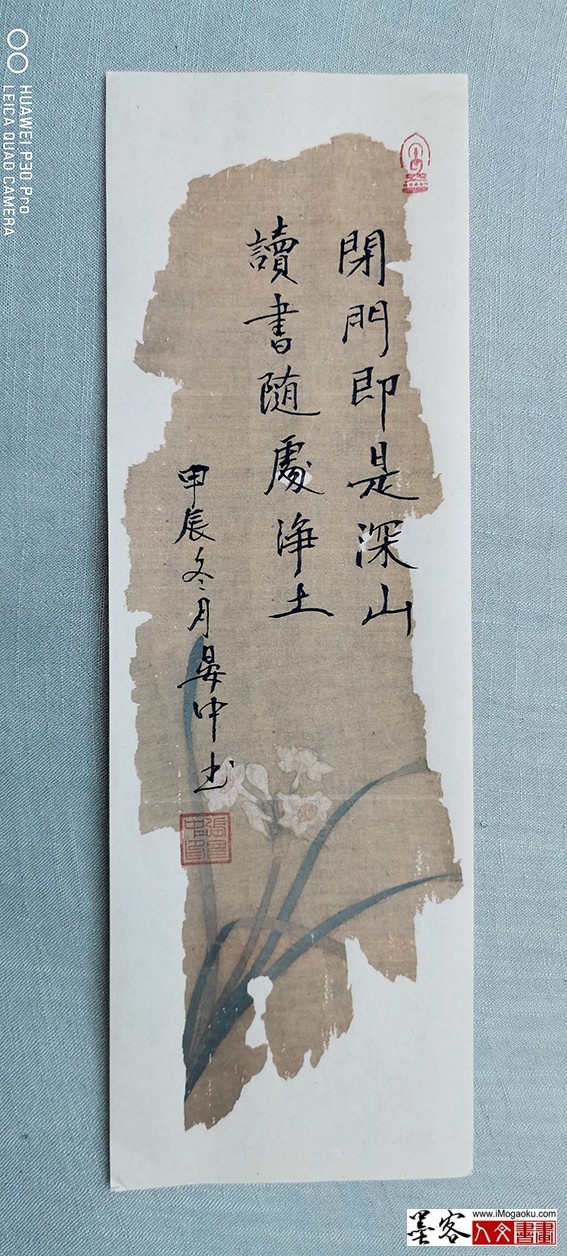 閉門即是深山
讀書随處浄土
甲辰冬月晏中书
HUAWEI P30 Pro
LEICA QUAD CAMERA
www.iMogaoku.com
墨客
人文書畫